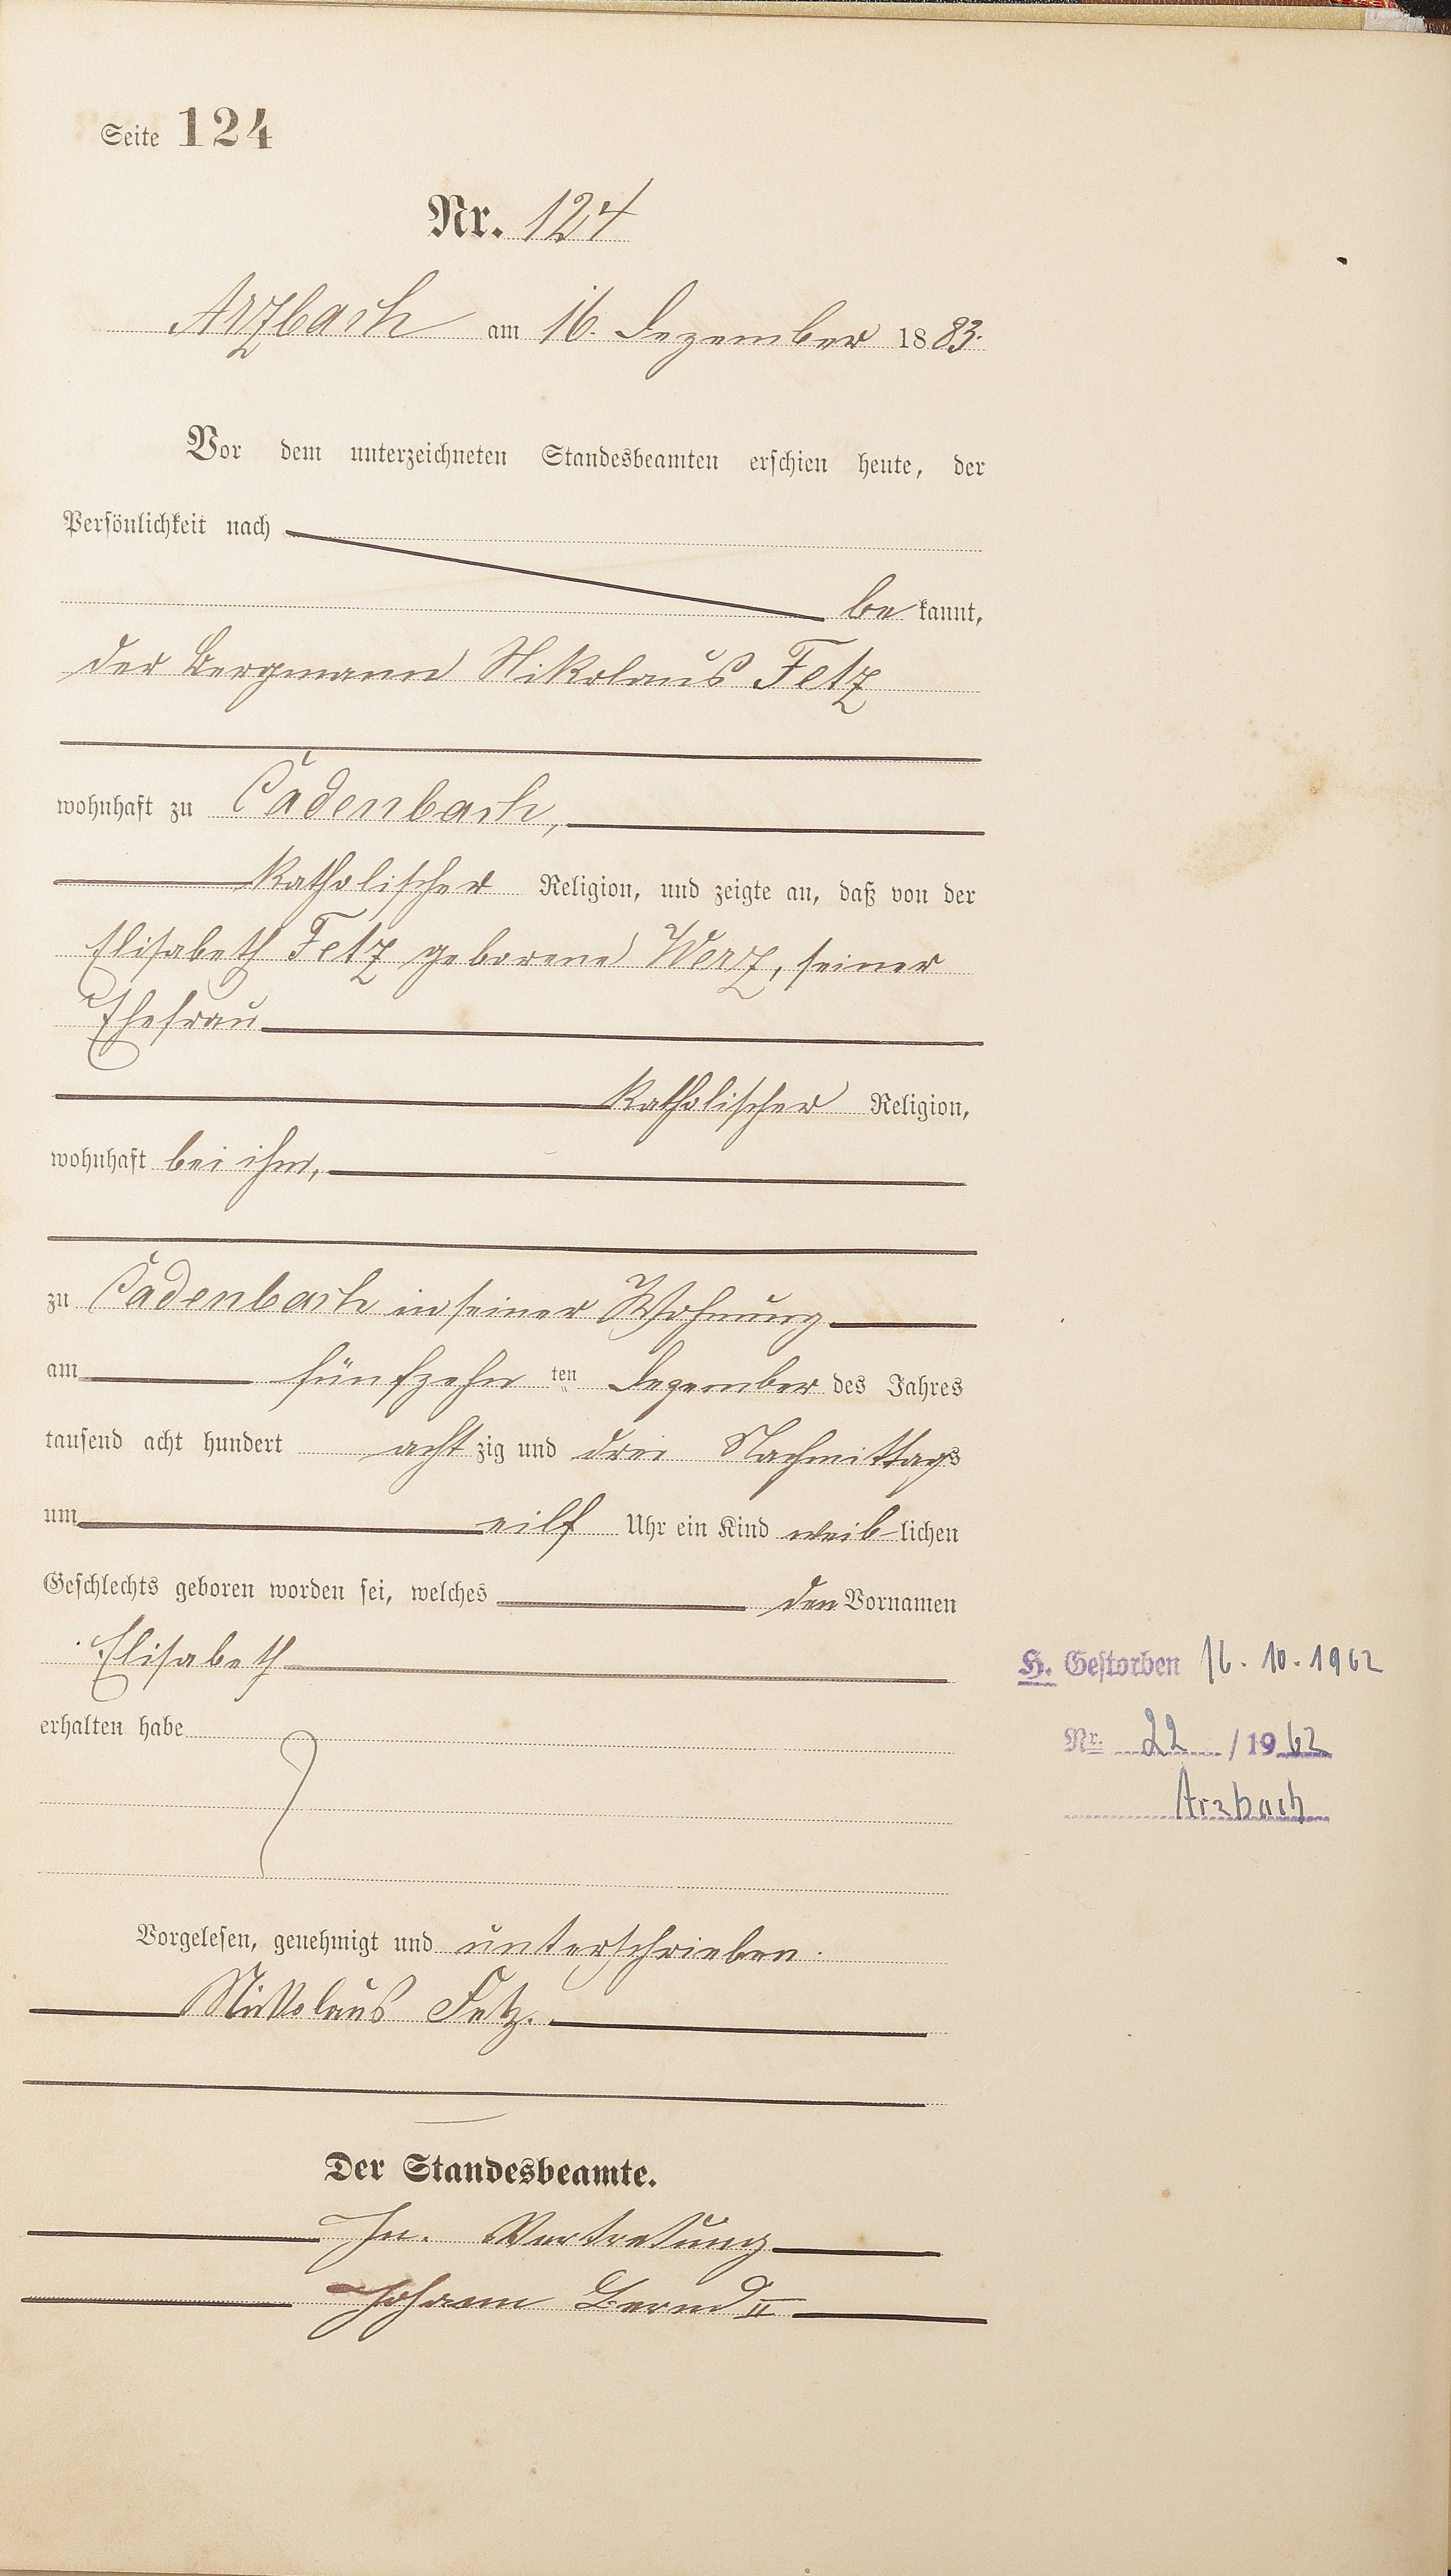 Seite 124
Nr. 124
Arzbach am 16. Dezember 1883.
Vor dem unterzeichneten Standesbeamten erschien heute, der
Persönlichkeit nach
be kannt,
der Bergmann Nikolaus Fetz
wohnhaft zu Cadenbach,
katholischer Religion, und zeigte an, daß von der
Elisabeth Fetz geborene Werz, seiner
Ehefrau
katholischer Religion,
wohnhaft bei ihm,
zu Cadenbach in seiner Wohnung
am fünfzehn ten Dezember des Jahres
tausend acht hundert acht zig und drei Nachmittags
um eilf Uhr ein Kind weib-lichen
Geschlechts geboren worden sei, welches den Vornamen
Elisabeth
H. Gestorben 16.10.1962
erhalten habe
Nr. 22 / 1962
Arzbach
Vorgelesen, genehmigt und unterschrieben.
Nikolaus Fetz.
Der Standesbeamte.
In Vertretung
Johann Bernd II